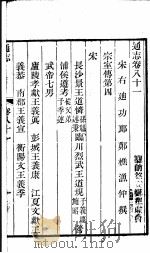 通志卷八十一
宋右迪功郎鄭樵漁仲撰
宗室傳第四
宋
長沙景王道憐 臨川烈武王道規
侯遵考
武帝七男
廬陵孝獻王義真 彭城王義康 江夏文獻王
義恭 南郡王義宣 衡陽文王義季
通志